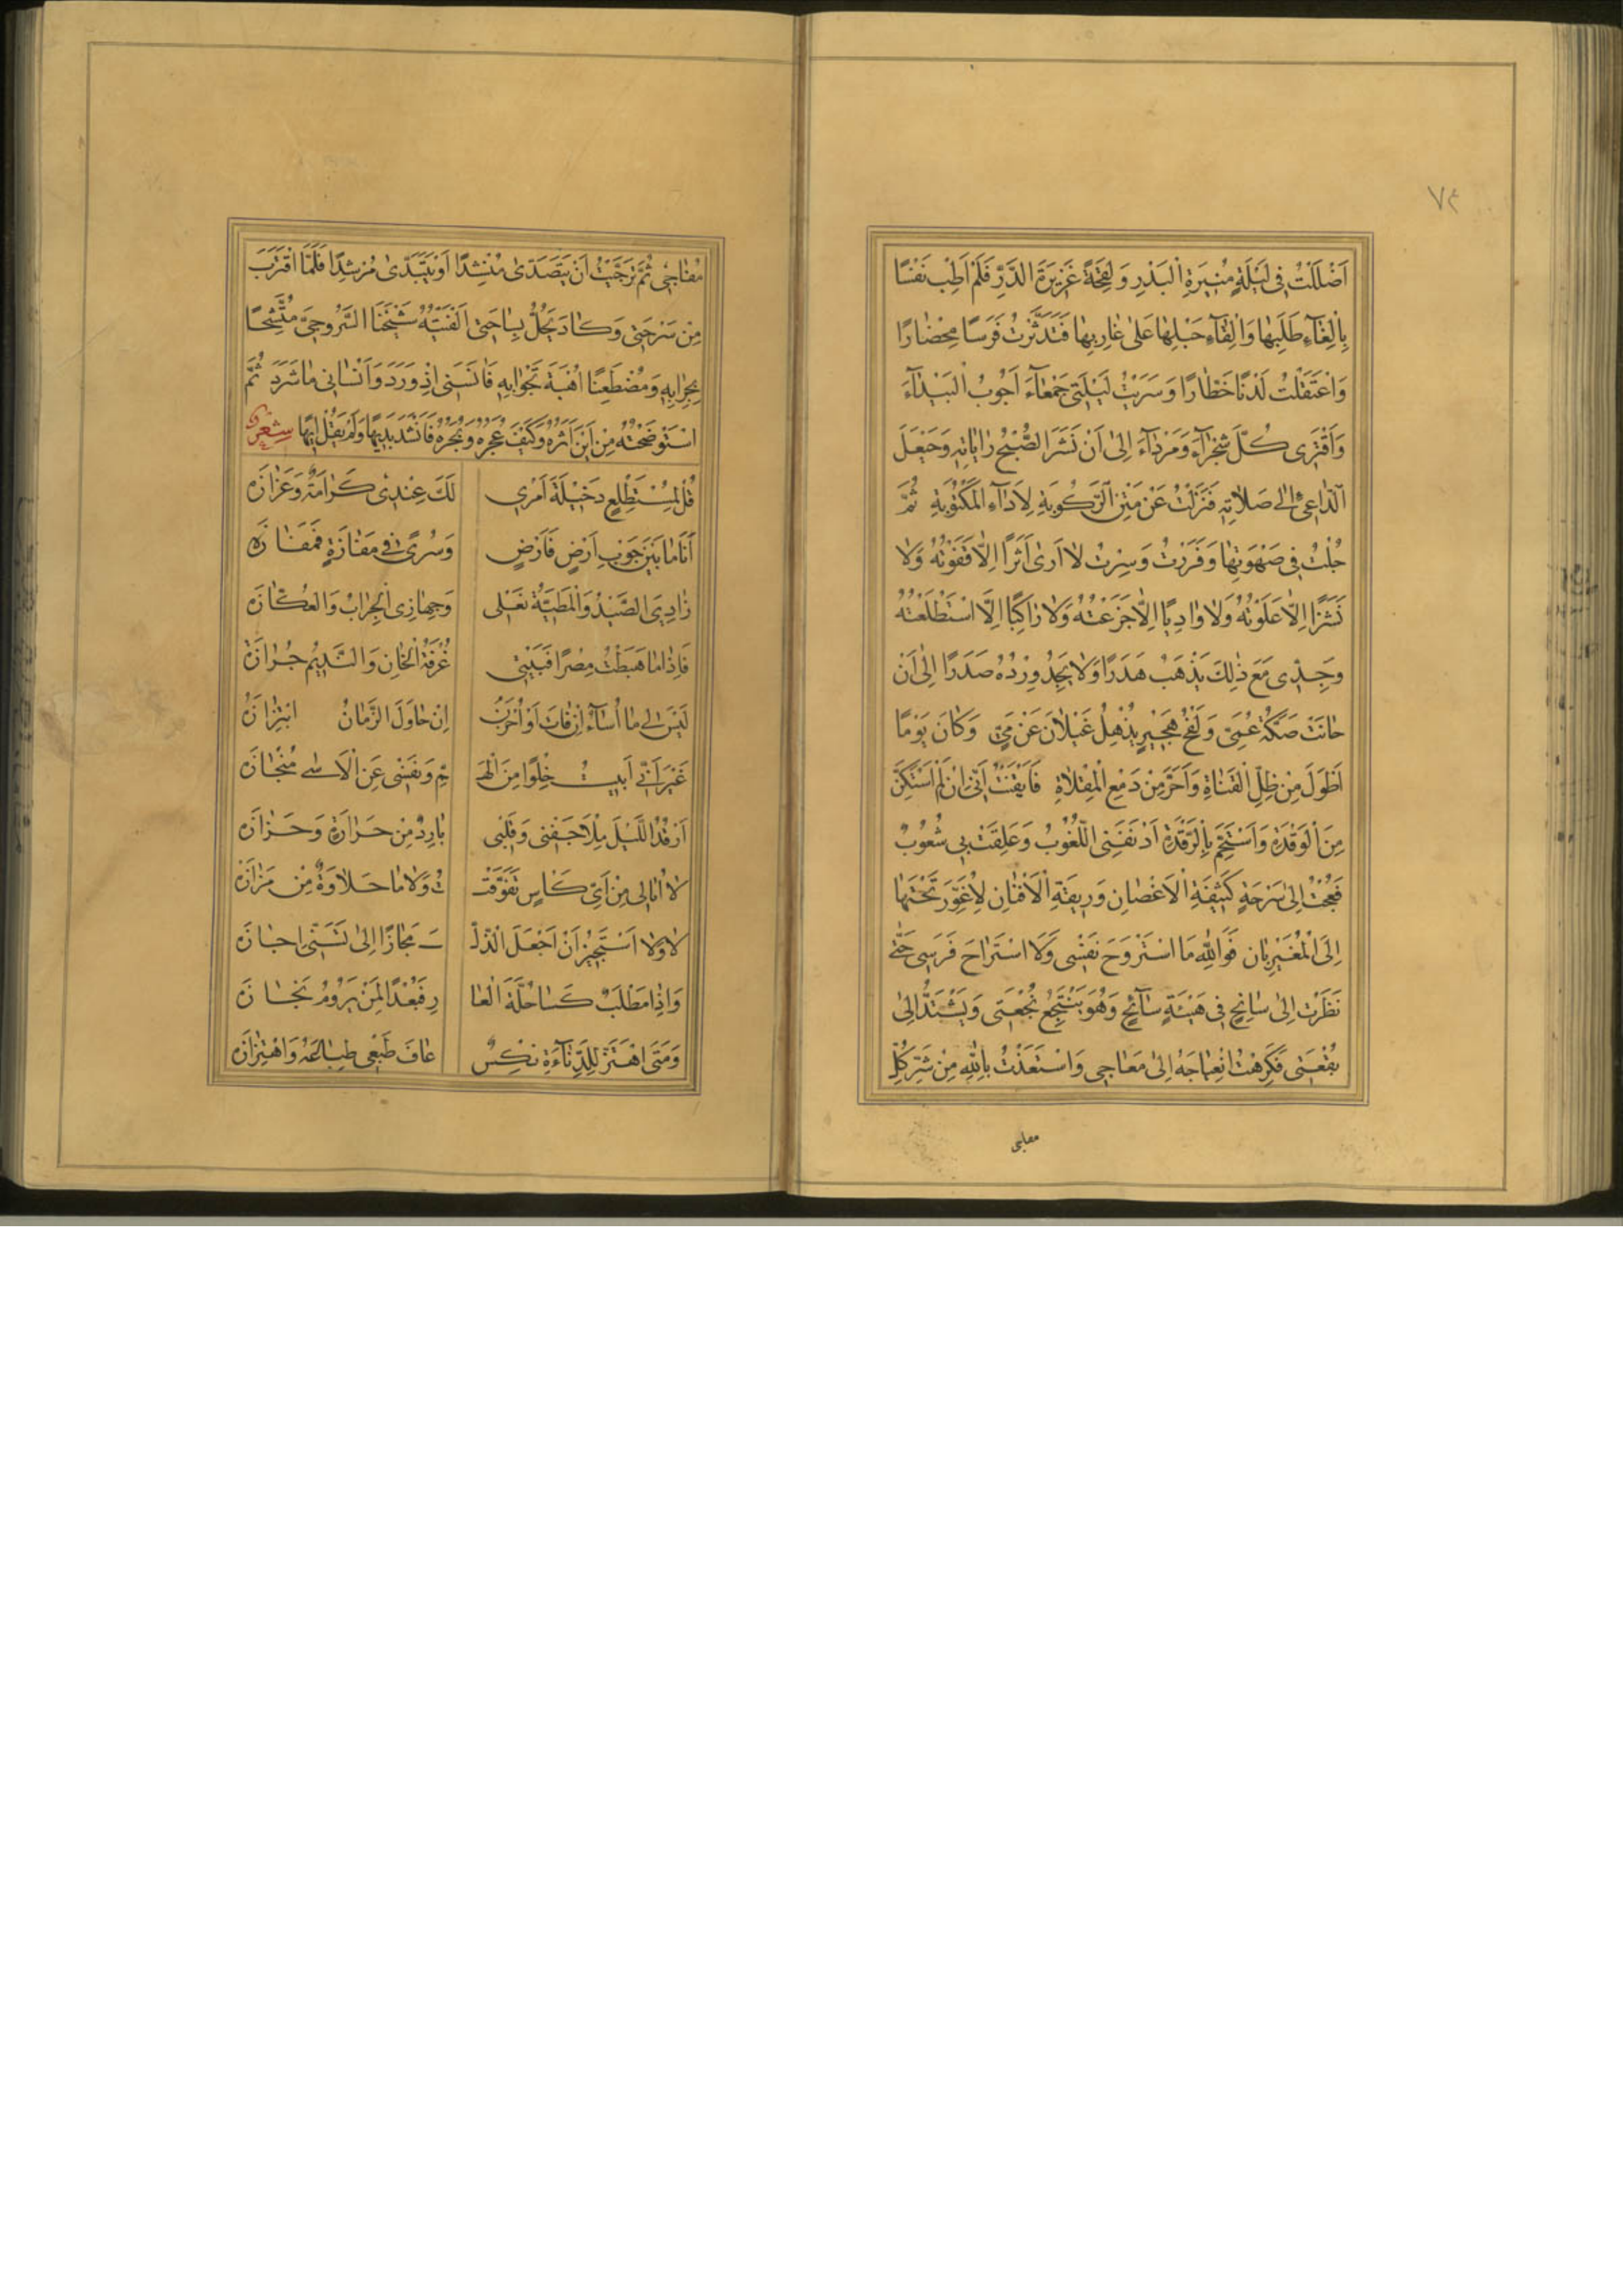 ٧٤
اَضْلَلْتُ فِي لَيْلَةٍ مُنِيرَةِ الْبَدْرِ وَلِقْحَةً غَزِيرَةَ الدَّرِّ فَلَمْ اَطِبْ نَفْسًا
بِاِلْغَآءِ طَلَبِهَا وَاِلْقَآءِ حَبْلِهَا عَلٰى غَارِبِهَا فَتَدَثَّرْتُ فَرَسًا مِحْضَارًا
وَاعْتَقَلْتُ لَدْنًا خَطَّارًا وَسَرَيْتُ لَيْلَتِي جَمْعَآءَ اَجُوبُ الْبَيْدَآءَ
وَاَقْتَرِى كُلَّ شَجْرَآءَ وَمَرْدَآءَ اِلٰى اَنْ نَشَرَ الصُّبْحُ رَايَاتِهِ وَحَيْعَلَ
الدَّاعِي اِلٰى صَلَاتِهِ فَنَزَلْتُ عَنْ مَتْنِ الرَّكُوبَةِ لِاَدَآءِ الْمَكْتُوبَةِ ثُمَّ
حُلْتُ فِي صَهْوَتِهَا وَفَرَرْتُ وَسِرْتُ لَا اَرٰى اَثَرًا اِلَّا قَفَوْتُهُ وَلَا
نَشَزًا اِلَّا عَلَوْتُهُ وَلَا وَادِيًا اِلَّا جَزَعْتُهُ وَلَا رَاكِبًا اِلَّا اسْتَطْلَعْتُهُ
وَجِدِّى مَعَ ذٰلِكَ يَذْهَبُ هَدَرًا وَلَا يَجِدُ وِرْدُهُ صَدَرًا اِلٰى اَنْ
حَانَتْ صَكَّةُ عُمَيٍّ وَلَفْحُ هَجِيرٍ يُذْهِلُ غَيْلَانَ عَنْ مَيٍّ وَكَانَ يَوْمًا
اَطْوَلَ مِنْ ظِلِّ الْقَنَاةِ وَاَحَرَّ مِنْ دَمْعِ الْمِقْلَاةِ فَاَيْقَنْتُ اَنِّي اِنْ لَمْ اَسْتَكِنَّ
مِنَ الْوَقْدَةِ وَاَسْتَجِمَّ بِالرَّقْدَةِ اَدْنَفَنِي اللُّغُوبُ وَعَلِقَتْ بِي شَعُوبُ
فَعُجْتُ اِلٰى سَرْحَةٍ كَثِيفَةِ الْاَغْصَانِ وَرِيقَةِ الْاَفْنَانِ لِاُغَوِّرَ تَحْتَهَا
اِلَى الْمُغَيْرِبَانِ فَوَاللّٰهِ مَا اسْتَرْوَحَ نَفْسِى وَلَا اسْتَرَاحَ فَرَسِى حَتّٰى
نَظَرْتُ اِلٰى سَانِحٍ فِي هَيْئَةِ سَآئِحٍ وَهُوَ يَنْتَجِعُ نُجْعَتِى وَيَشْتَدُّ اِلٰى
بُقْعَتِى فَكَرِهْتُ انْعِيَاجَهُ اِلٰى مَعَاجِى وَاسْتَعَذْتُ بِاللّٰهِ مِنْ شَرِّ كُلِّ
مفاجى
مُفَاجِى ثُمَّ تَرَجَّيْتُ اَنْ يَتَصَدّٰى مُنْشِدًا اَوْ يَتَبَدّٰى مُرْشِدًا فَلَمَّا اقْتَرَبَ
مِنْ سَرْحَتِى وَكَادَ يَحُلُّ بِسَاحَتِى اَلْفَيْتُهُ شَيْخَنَا السَّرُوجِيَّ مُتَّشِحًا
بِجِرَابِهِ وَمُضْطَغِنًا اُهْبَةَ تَجْوَابِهِ فَاٰنَسَنِى اِذْ وَرَدَ وَاَنْسَانِى مَا شَرَدَ ثُمَّ
اسْتَوْضَحْتُهُ مِنْ اَيْنَ اَثَرُهُ وَكَيْفَ عُجَرُهُ وَبُجَرُهُ فَاَنْشَدَ بَدِيهًا وَلَمْ يَقُلْ اِيهًا شعر
قُلْ لِمُسْتَطْلِعٍ دَخِيلَةَ اَمْرِى لَكَ عِنْدِى كَرَامَةٌ وَعَزَازَه
اَنَا مَا بَيْنَ جَوْبِ اَرْضٍ فَاَرْضٍ وَسُرًى فِي مَفَازَةٍ فَمَفَازَه
زَادِيَ الصَّيْدُ وَالْمَطِيَّةُ نَعْلِى وَجِهَازِى الْجِرَابُ وَالْعُكَّازَه
فَاِذَا مَا هَبَطْتُ مِصْرًا فَبَيْتِى غُرْفَةُ الْخَانِ وَالنَّدِيمُ جُزَازَه
لَيْسَ لِى مَا اُسَآءُ اِنْ فَاتَ اَوْ اَحْزَنُ اِنْ حَاوَلَ الزَّمَانُ ابْتِزَازَهُ
غَيْرَ اَنِّى اَبِيتُ خِلْوًا مِنَ الْهَـ ـمِّ وَنَفْسِى عَنِ الْاَسٰى مُنْحَازَه
اَرْقُدُ اللَّيْلَ مِلْأَ جَفْنِى وَقَلْبِى بَارِدٌ مِنْ حَرَارَةٍ وَحَزَازَه
لَا اُبَالِى مِنْ اَيِّ كَاْسٍ تَفَوَّقْـ ـتُ وَلَا مَا حَلَاوَةٌ مِنْ مَزَازَه
لَا وَلَا اَسْتَجِيزُ اَنْ اَجْعَلَ الذُّلَّ ـ مَجَازًا اِلٰى تَسَنِّى اِجَازَه
وَاِذَا مَطْلَبٌ كَسَا حُلَّةَ الْعَا رِ فَبُعْدًا لِمَنْ يَرُومُ نَجَازَه
وَمَتَى اهْتَزَّ لِلدَّنَآءَةِ نِكْسٌ عَافَ طَبْعِى طِبَاعَهُ وَاهْتِزَازَه